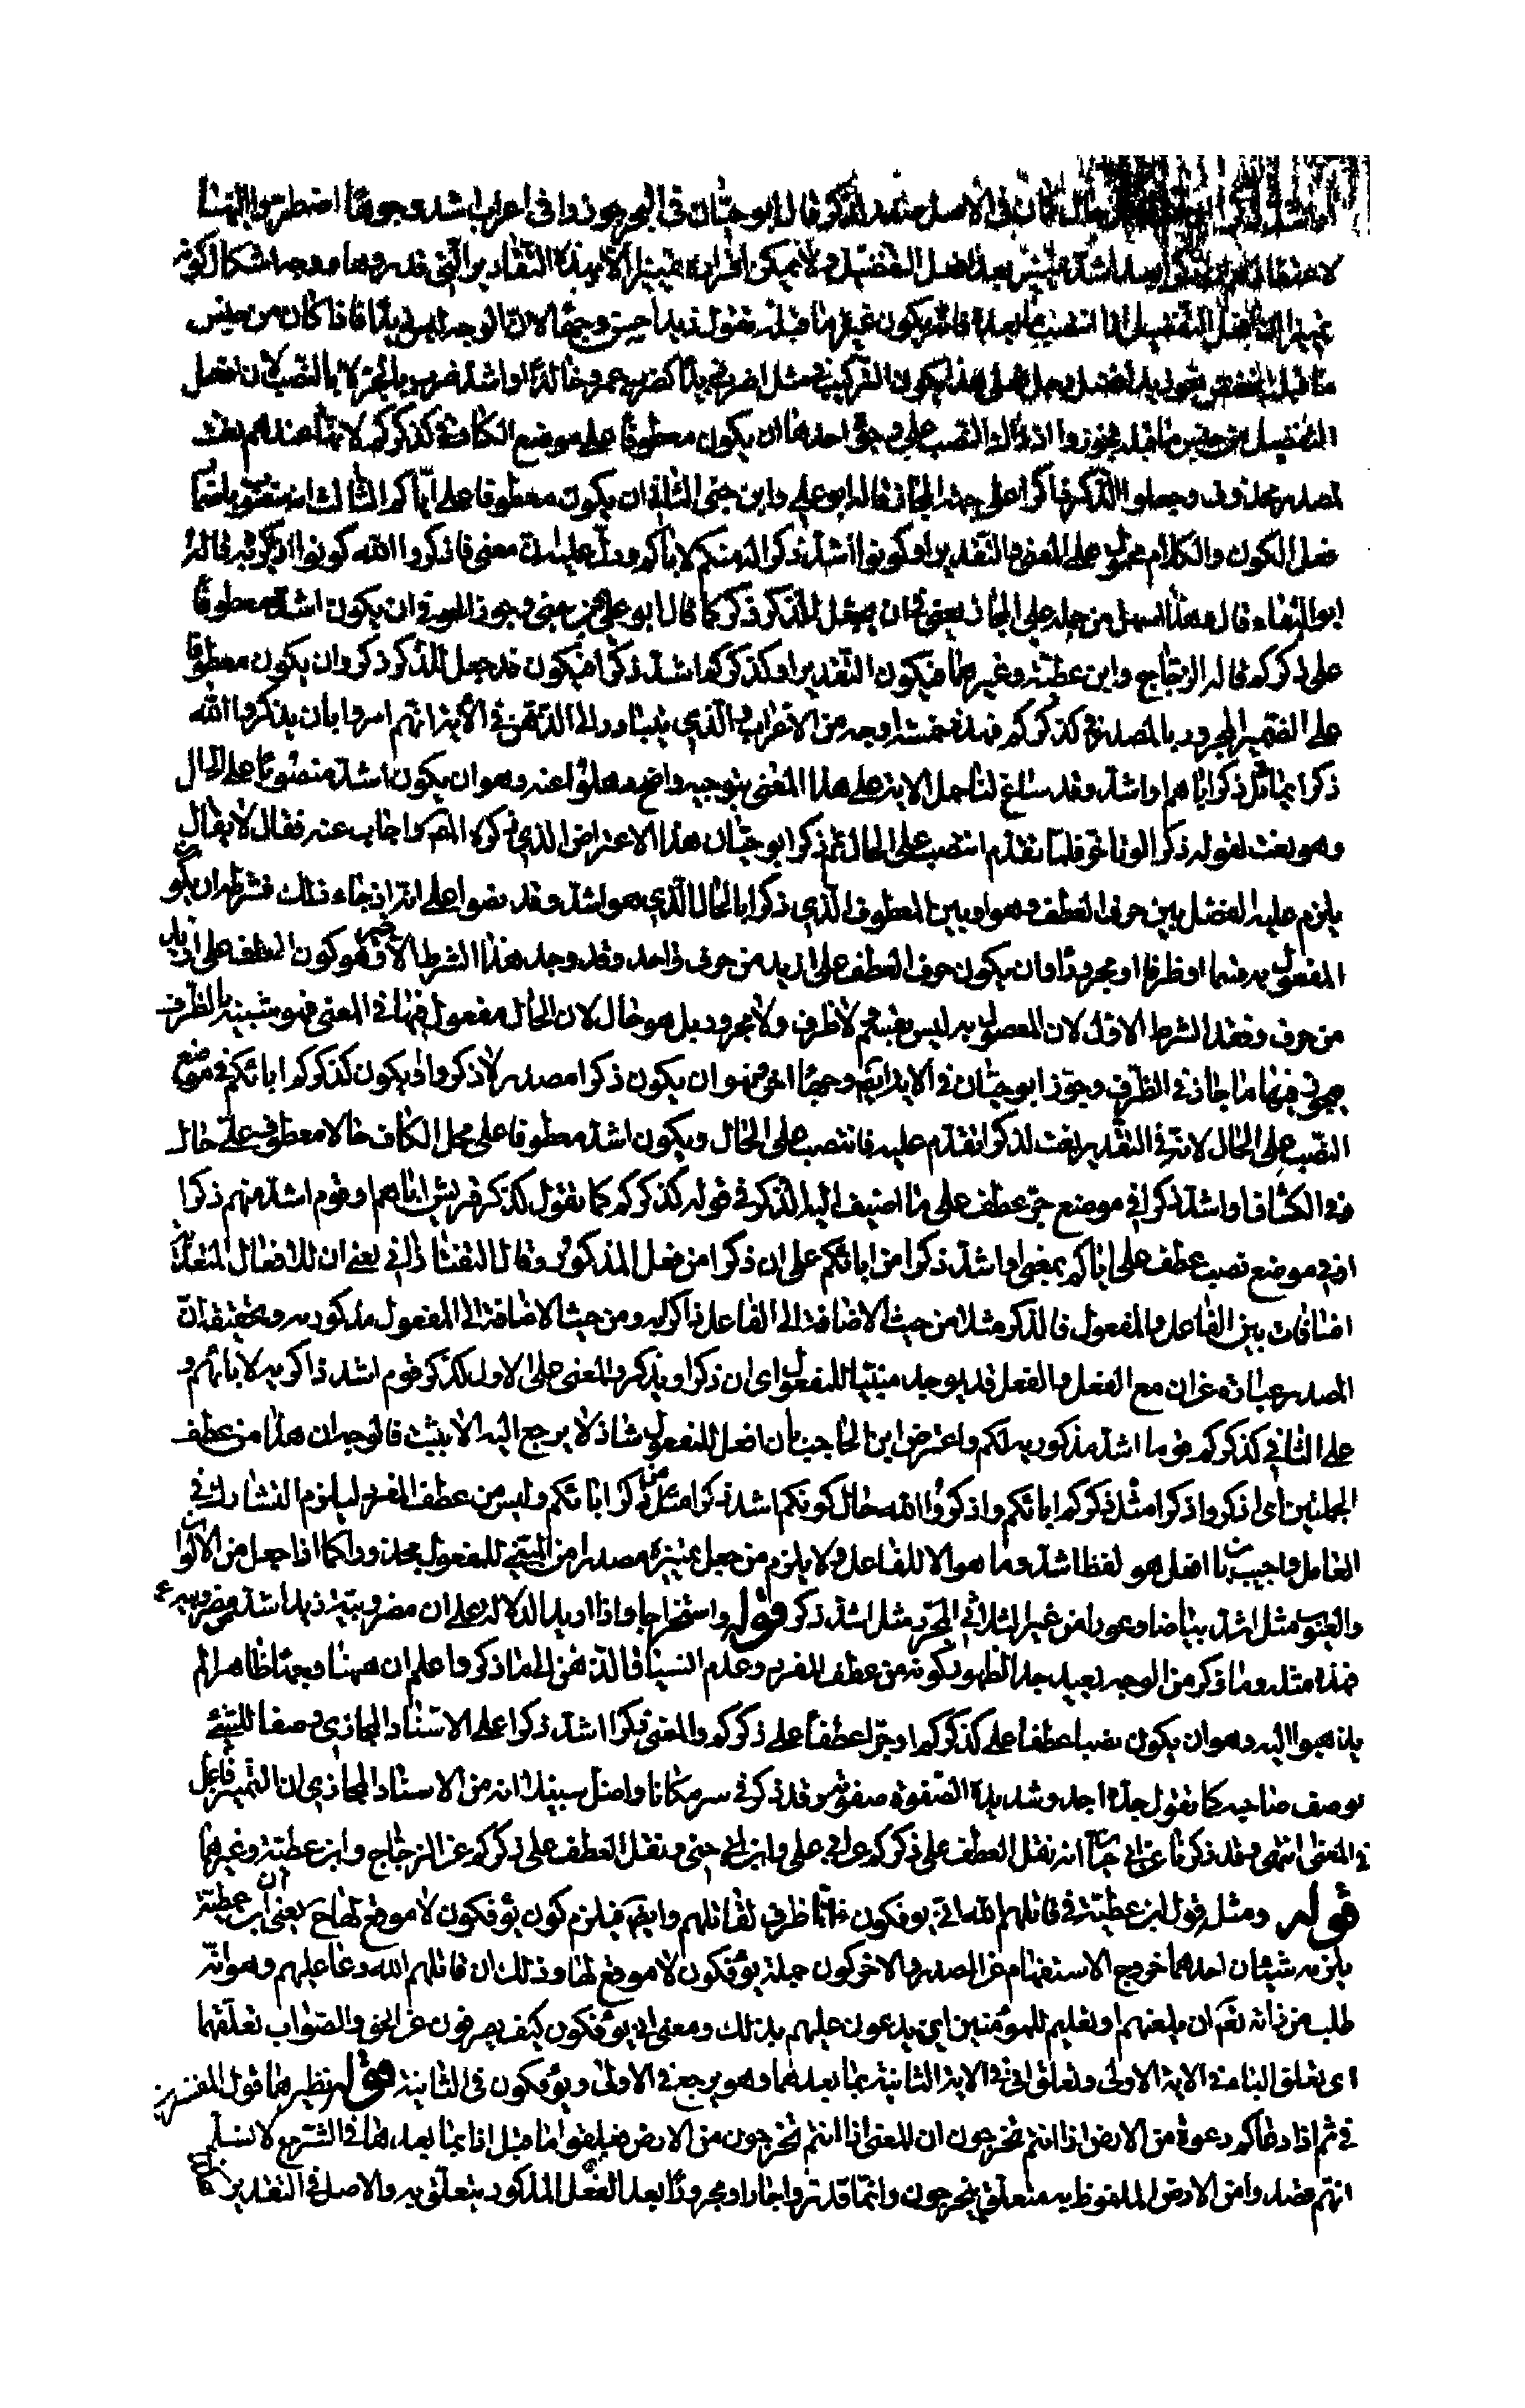 حال كان في الاصل ذكر قال ابو حيان في البحر جوزوا في اعراب اشد وجوها اضطروا اليها
لاعتقادهم ان ذكرا بعد اشد تمييز بعد افعل التفضيل ولا يمكن اقراره تمييزا الا بهذه التقادير التي قدروها ووجه اشكال كونه
تمييزا ان افعل التفضيل اذا انتصب ما بعده فانه يكون غير ما قبله تقول زيد احسن وجها لان الوجه ليس زيدا فاذا كان من جنس
ما قبله انخفض نحو زيد افضل رجل فعلى هذا يكون التركيب في مثل اضرب زيدا كضرب عمرو خالدا او اشد ضرب بالجر لا بالنصب لان افعل
التفضيل من جنس ما قبله فجوزوا اذ ذاك النصب على وجوه احدها ان يكون معطوفا على موضع الكاف في كذكركم لانها عندهم نعت
لمصدر محذوف وجعلوا الذكر ذاكرا على جهة المجاز قاله ابو علي وابن جني الثاني ان يكون معطوفا على اباكم الثالث انه منصوب باضمار
فعل الكون والكلام محمول على المعنى والتقدير او كونوا اشد ذكرا له منكم لاباكم ودل عليه ان معنى فاذكروا الله كونوا ذاكريه قاله
ابو البقاء قال وهذا اسهل من حمله على المجاز يعني في ان يجعل للذكر ذكر كما قال ابو علي وابن جني وجوز الجر في ان يكون اشد معطوفا
على ذكركم قاله الزجاج وابن عطية وغيرهما فيكون التقدير او كذكركم اشد ذكرا فيكون قد جعل للذكر ذكر وان يكون معطوفا
على الضمير المجرور بالمصدر في كذكركم فهذه خمسة اوجه من الاعراب والذي يتبادر الى الذهن في الاية انهم امروا بان يذكروا الله
ذكرا يماثل ذكر اباهم او اشد وقد ساغ لنا حمل الاية على هذا المعنى بتوجيه واضح ذهلوا عنه وهو ان يكون اشد منصوبا على الحال
وهو نعت لقوله ذكرا لو تاخر فلما تقدم انتصب على الحال ثم ذكر ابو حيان هذا الاعتراض الذي ذكره المص واجاب عنه فقال لا يقال
يلزم عليه الفصل بين حرف العطف وهو او وبين المعطوف الذي ذكرا بالحال الذي هو اشد وقد نصوا على انه اذا جاء ذلك فشرطه ان يكون
المفعول به قسما او ظرفا او مجرورا وان يكون حرف العطف على ازيد من حرف واحد وقد وجد هذا الشرط الاخير وهو كون العطف على ازيد
من حرف وفقد الشرط الاول لان المفصول به ليس بقسم ولا ظرف ولا مجرور بل هو حال لان الحال مفعول فيها في المعنى فهو شبيه بالظرف
فيجوز فيها ما جاز في الظرف وجوز ابو حيان في الاية ايضا وجها اخر وهو ان يكون ذكرا مصدر لاذكروا ويكون كذكركم اباءكم في موضع
النصب على الحال لانه في التقدير نعت لذكرا تقدم عليه فانتصب على الحال ويكون اشد معطوفا على محل الكاف حالا معطوفة على حال
وفي الكشاف او اشد ذكرا في موضع جر عطف على ما اضيف اليه الذكر في قوله كذكركم كما تقول كذكر قريش اباهم او قوم اشد منهم ذكرا
او في موضع نصب عطف على اباكم بمعنى او اشد ذكرا من ابائكم على ان ذكرا من فعل المذكور وقال التفتازاني يعني ان للافعال المتعدية
اضافات بين الفاعل والمفعول فالذكر مثلا من حيث الاضافة الى الفاعل ذاكرية ومن حيث الاضافة الى المفعول مذكورية وتحقيقه ان
المصدر عبارة عن ان مع الفعل والفعل قد يوجد مبنيا للمفعول اي ان ذكر او يذكر والمعنى على الاول كذكر قوم اشد ذاكرية لابائهم و
على الثاني كذكركم قوما اشد مذكورية لكم واعترض ابن الحاجب بان افعل للمفعول شاذ لا يرجع اليه الا بثبت فالوجه ان هذا من عطف
الجملتين اي اذكروا ذكرا مثل ذكركم اباءكم واذكروا الله حال كونكم اشد ذكرا من ذكر ابائكم وليس من عطف المفرد ليلزم التشارك في
العامل واجيب بان افعل هو لفظ اشد وما هو الا للفاعل ولا يلزم من جعل تمييزه مصدرا من المبني للمفعول محذورا كما اذا جعل من الالوان
والعيوب مثل اشد بياضا وعورا من غير الثلاثي المجرد مثل اشد ذكر قوله واستخراجا واذا اريد الدلالة على ان مضروبية زيد اشد مضروبية ع
فهذه مثله وما ذكر من الوجه بعيد جدا لظهور كونه من عطف المفرد وعدم انسياق الذهن الى ما ذكر واعلم ان ههنا وجها ظاهرا لم
يذهبوا اليه وهو ان يكون نصبا عطفا على كذكركم او جرا عطفا على ذكركم والمعنى ذكرا اشد ذكرا على الاسناد المجازي وصفا للشيء
بوصف صاحبه كما تقول جده اجد وشديد الصفوة صفوته وقد ذكر في سر مكانا واضل سبيلا انه من الاسناد المجازي ان التمييز فاعل
في المعنى انتهى وقد ذكرنا عن ابي حيان انه نقل العطف على ذكركم عن ابي علي وابن جني ونقل العطف على ذكركم عن الزجاج وابن عطية وغيرهما
قوله ومثل قول ابن عطية في قاتلهم الله انى يوفكون ان انى ظرف لقاتلهم وايضا فيلزم كون يؤفكون لا موقع لها ح يعني ان ابن عطية
يلزمه شيئان احدهما خروج الاستفهام عن المصدر والاخر كون جملة يؤفكون لا موقع لها وذلك ان قاتلهم الله دعا عليهم وهو انه
طلب من ذاته تعم ان يلعنهم او تعليم للمؤمنين اي يدعون عليهم بذلك ومعنى انى يؤفكون كيف يصرفون عن الحق والصواب تعلقهما
اى تعلق الباء في الاية الاولى وتعلق انى في الاية الثانية بما بعدهما وهو يرجع في الاولى ويؤفكون في الثانية قوله نظيرهما قول المفسرين
في ثم اذا دعاكم دعوة من الارض اذا انتم تخرجون ان المعنى اذا انتم تخرجون من الارض فعلقوا ما قبل اذا بما بعدها في الشرح لا نسلم
انهم قصدوا من الارض الملفوظ به متعلق بتخرجون وانما قدروا جارا ومجرورا بعد الفعل المذكور يتعلق به والاصل في التقدير كما